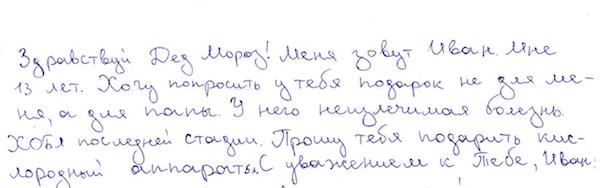 Здравствуй Дед Мороз! Меня зовут Иван. Мне
13 лет. Хочу попросить у тебя подарок не для ме-
ня, а для папы. У него неизлечимая болезнь.
ХОБЛ последней стадии. Прошу тебя подарить кис-
лородный аппарат 5л. С уважением к Тебе, Иван.